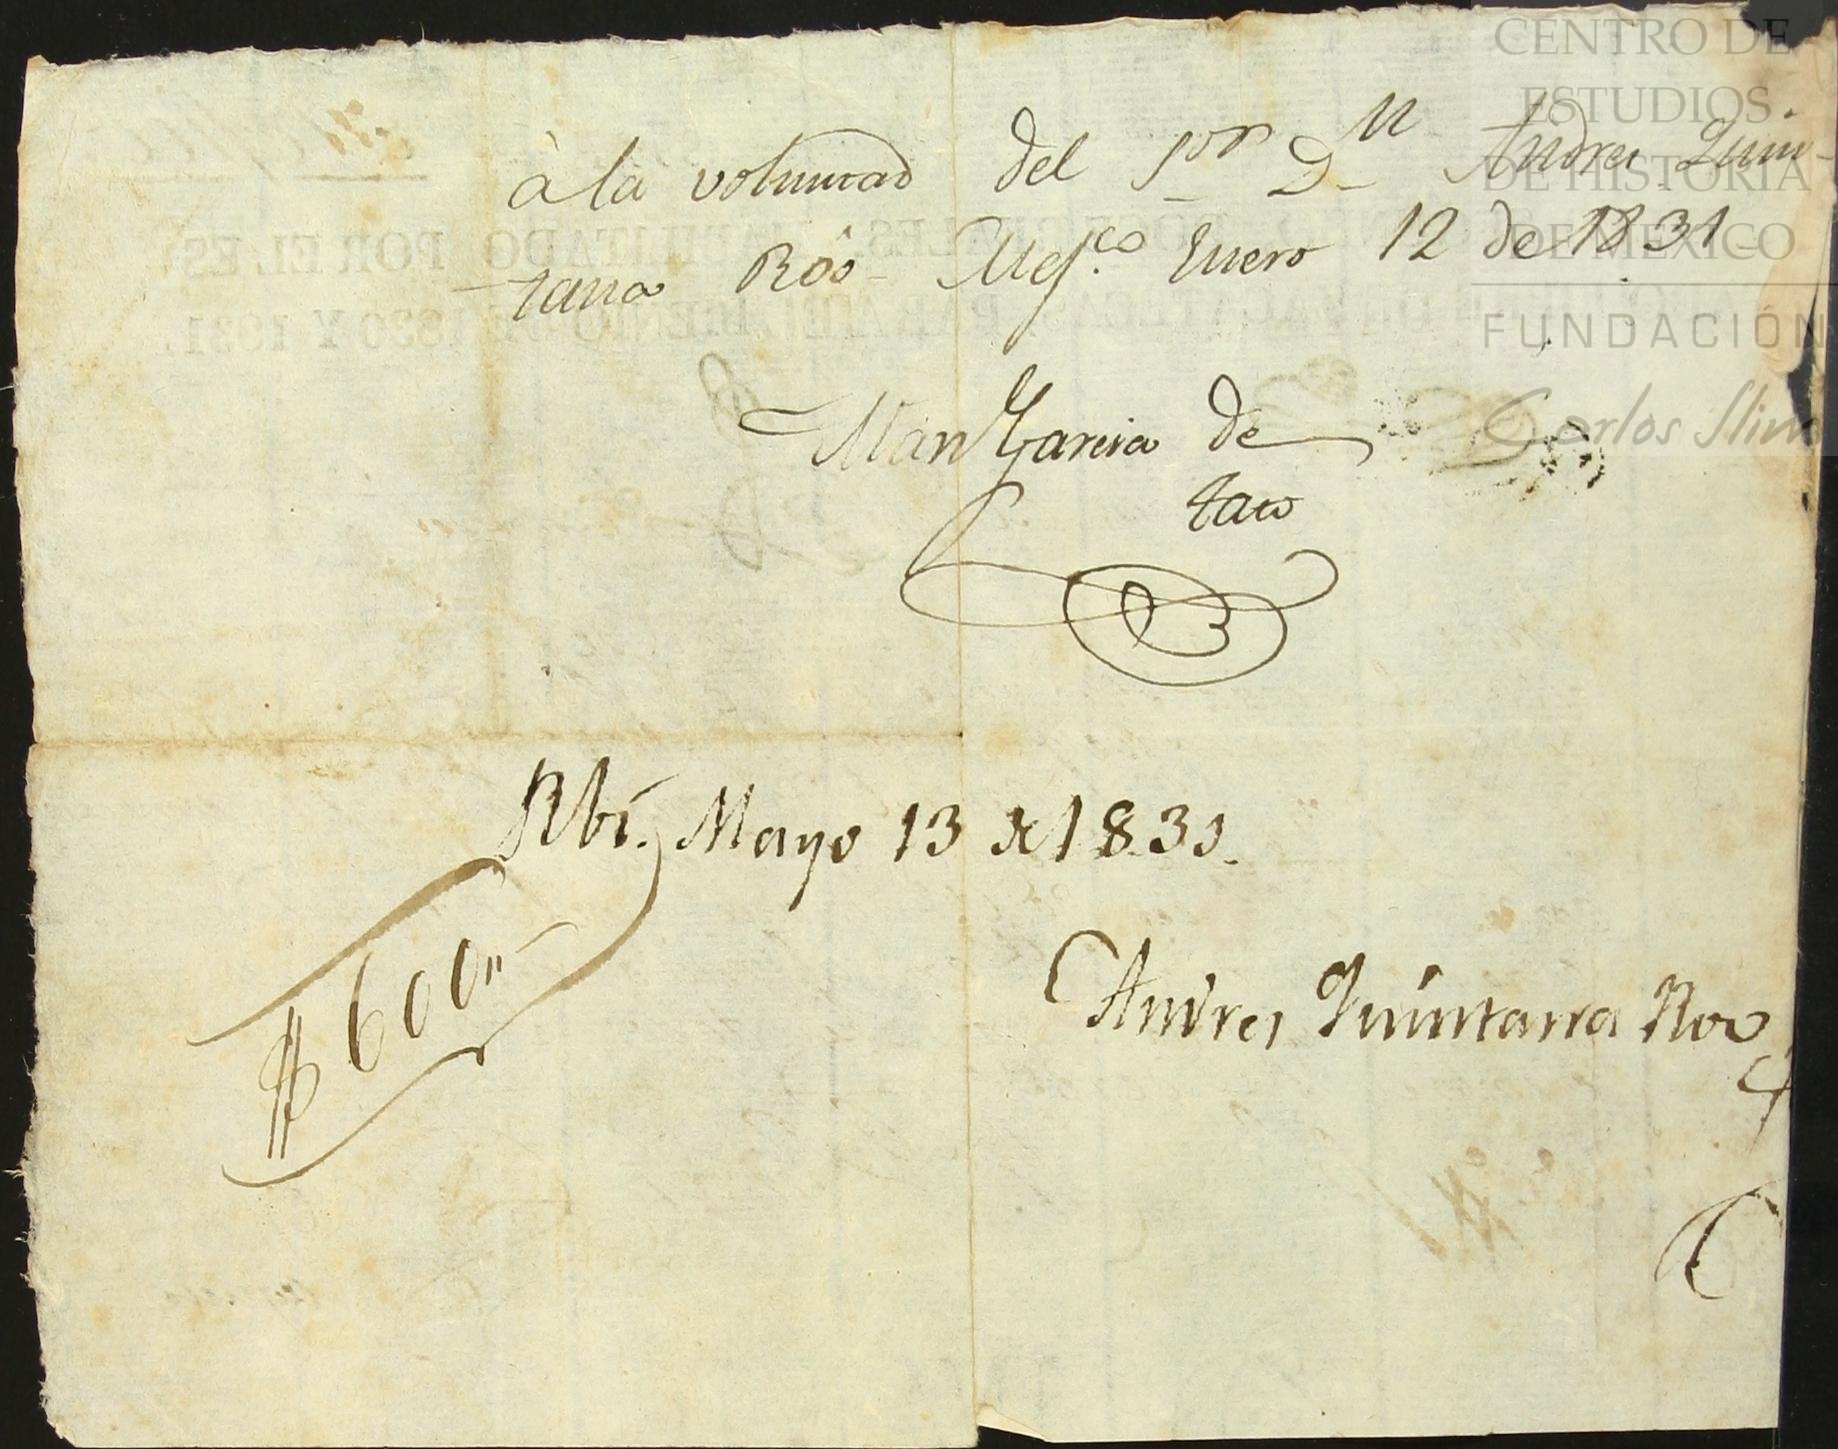 à la voluntad del Sor Dn Andres Quin-
tana Róo Mejco Enero 12 de 1831
Man Garcia de
Rbí. Mayo 13 de 1831.
$ 600"
Andres Quintana Roo
CENTRO DE
ESTUDIOS
DE HISTORIA
DE MÉXICO
FUNDACIÓN
Carlos Slim